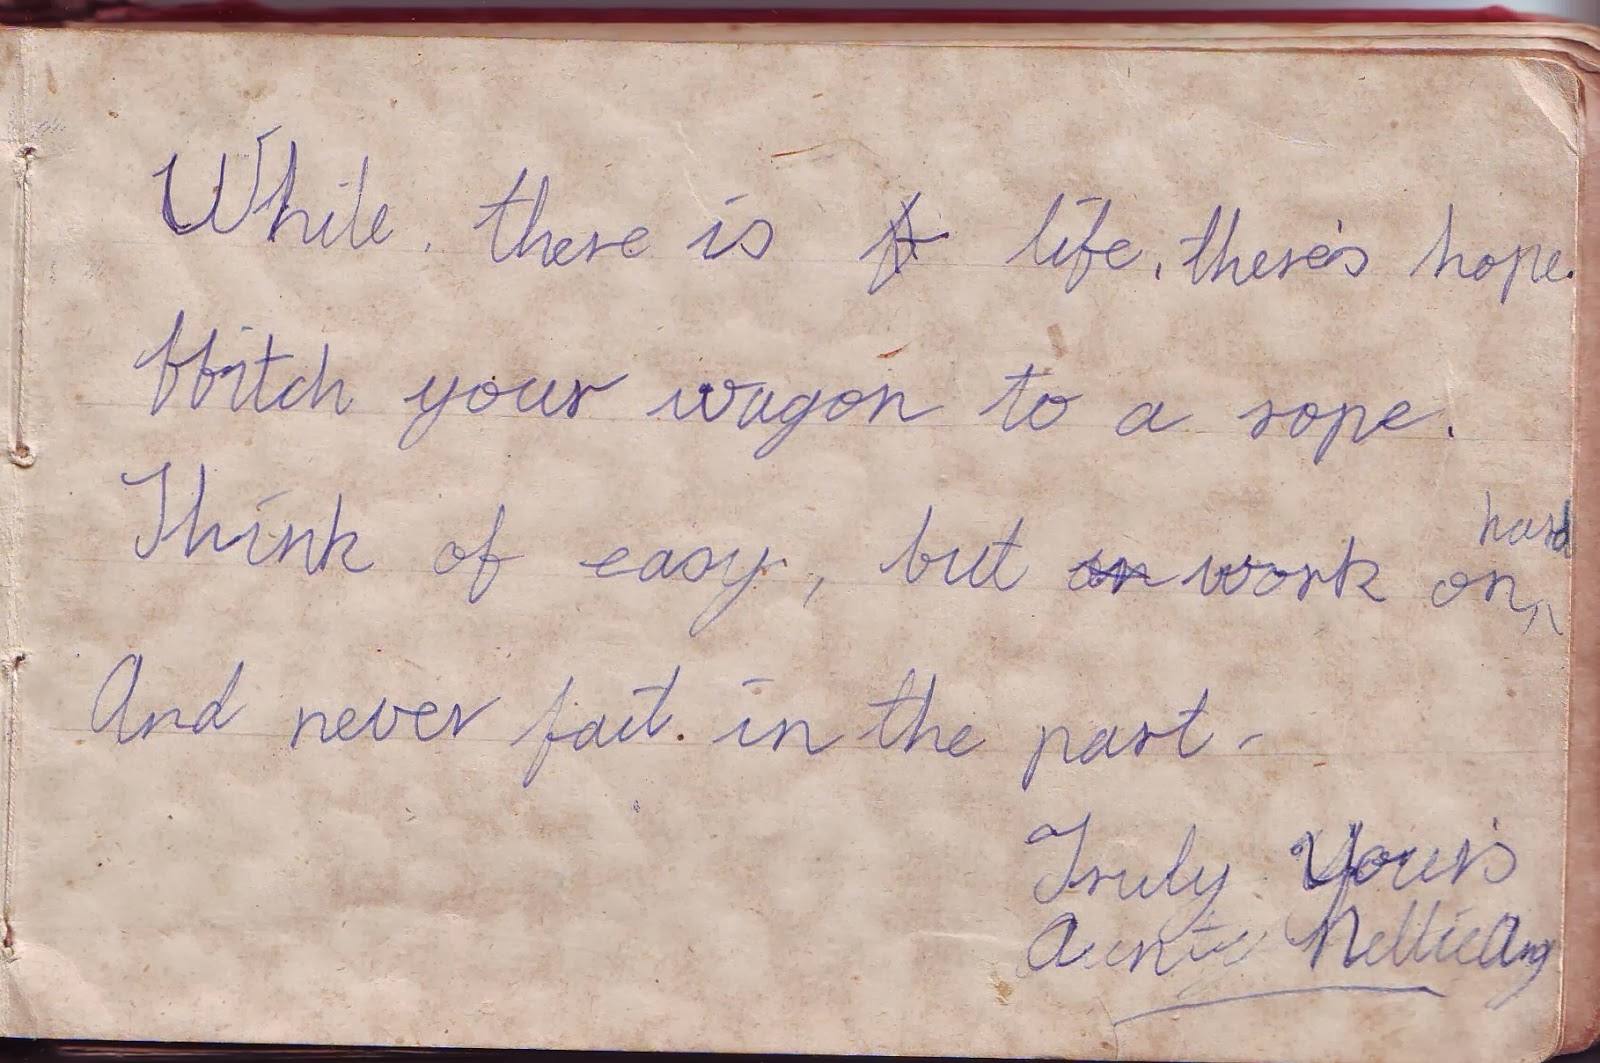 While. there is life, there's hope.
Hitch your wagon to a rope.
Think of easy, but work on, hard
And never fail. in the past -
Truly Your's
Auntie Nellie Ang